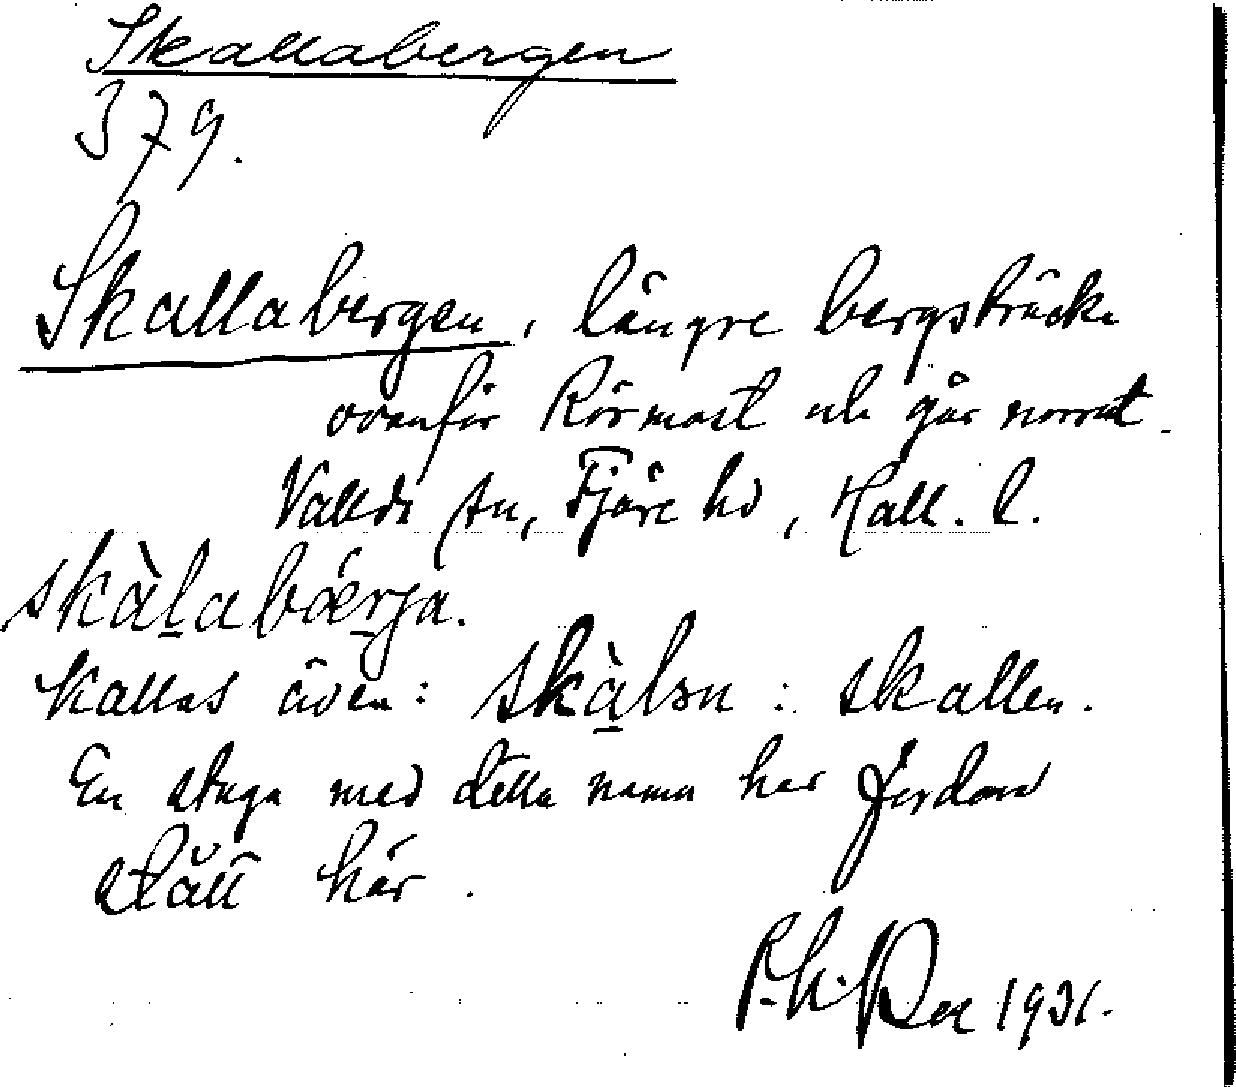 Skallabergen
379.
Skallabergen, längre bergsträcka
ovanför Rörmast och går norrut.
Vallda sn, Fjäre hd, Hall. l.
skàl̠abǽr̠ja.
Kallas även: skà̠lən : skallen.
En stuga med detta namn har fordom
stått här.
P. h. 1931.